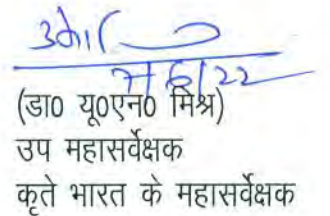 7/6/22
(डा० यू०एन० मिश्र)
उप महासर्वेक्षक
कृते भारत के महासर्वेक्षक